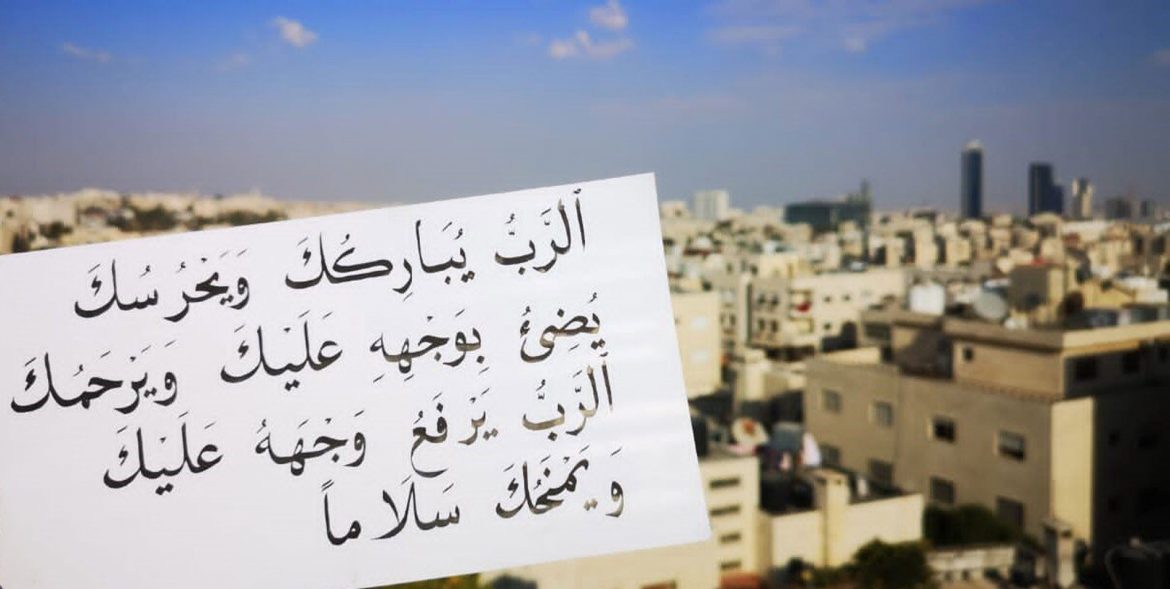 ٱلرَّبُّ يُبَارِكُكَ وَيَحْرُسُكَ
يُضِئُ بِوَجْهِهِ عَلَيْكَ وَيَرْحَمُكَ
ٱلرَّبُّ يَرْفَعُ وَجْهَهُ عَلَيْكَ
وَيَمْنَحُكَ سَلَاماً